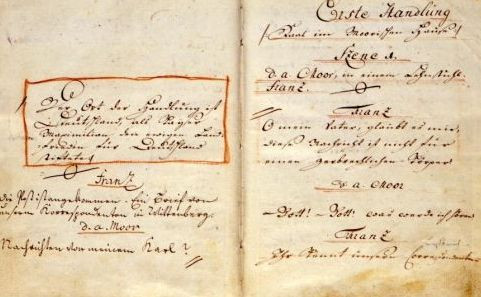 Der Ort der Handlung ist
Deutschland, als Kaiser
Maximilian, den ewigen Land-
frieden für Deutschland
stiftete
Franz
Die Post ist angekommen. Ein Brief von
unserm Korrespondenten in Wittenberg.
d. a. Moor
Nachrichten von meinem Karl?
Erste Handlung
Saal im Moorischen Hause
Szene 1.
d. a. Moor, in einem Lehnstuhl
Franz.
Franz
O mein Vater, glaubt es mir,
diese Nachricht ist nicht für
einen zerbrechlichen Körper
d. a. Moor
– Gott! – Gott! was werde ich hören
Franz
Ihr kennt unsern Correspondenten